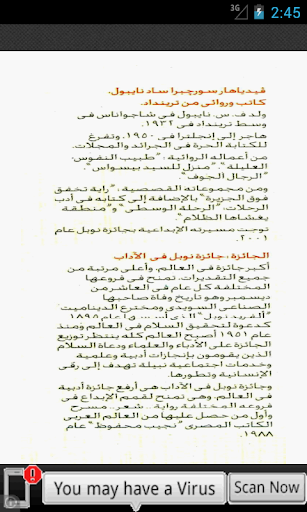 3G 2:45
ڤيدياهار سورچبرا ساد نايبول.
كاتب وروائى من ترينداد.
ولد ف. س. نايبول فى شاجواناس فى
وسط ترينداد فى ١٩٣٢.
هاجر إلى إنجلترا فى ١٩٥٠، وتفرغ
للكتابة الحرة فى الجرائد والمجلات.
من أعماله الروائية : "طبيب النفوس
العليلة"، "منزل للسيد بيسواس"،
"الرجال الجوف".
ومن مجموعاته القصصية، "راية تخفق
فوق الجزيرة" بالإضافة إلى كتابه فى أدب
الرحلات، "الرحلة الوسطى" و"منطقة
يغشاها الظلام".
توجت مسيرته الإبداعية بجائزة نوبل عام
٢٠٠١.
الجائزة : جائزة نوبل فى الآداب
أكبر جائزة فى العالم، وأعلى مرتبة من
جميع التقديرات، تمنح فى فروعها
المختلفة كل عام فى العاشر من
ديسمبر وهو تاريخ وفاة صاحبها
الصناعى السويدى ومخترع الديناميت
"ألفريد نوبل" ١٨٩٨
كدعوة لتحقيق السلام فى العالم ومنذ
عام ١٩٠١ أصبح العالم كله ينتظر توزيع
الجائزة على الأدباء والعلماء ودعاة السلام
الذين يقومون بإنجازات أدبية وعلمية
وخدمات اجتماعية نبيلة تهدف إلى رقى
الإنسانية وتطورها.
وجائزة نوبل فى الآداب هى أرفع جائزة أدبية
فى العالم، وهى تمنح لقمم الإبداع فى
فروعه المختلفة رواية.. شعر.. مسرح
وأول من حصل عليها من العالم العربى
الكاتب المصرى "نجيب محفوظ" عام
١٩٨٨.
You may have a Virus Scan Now